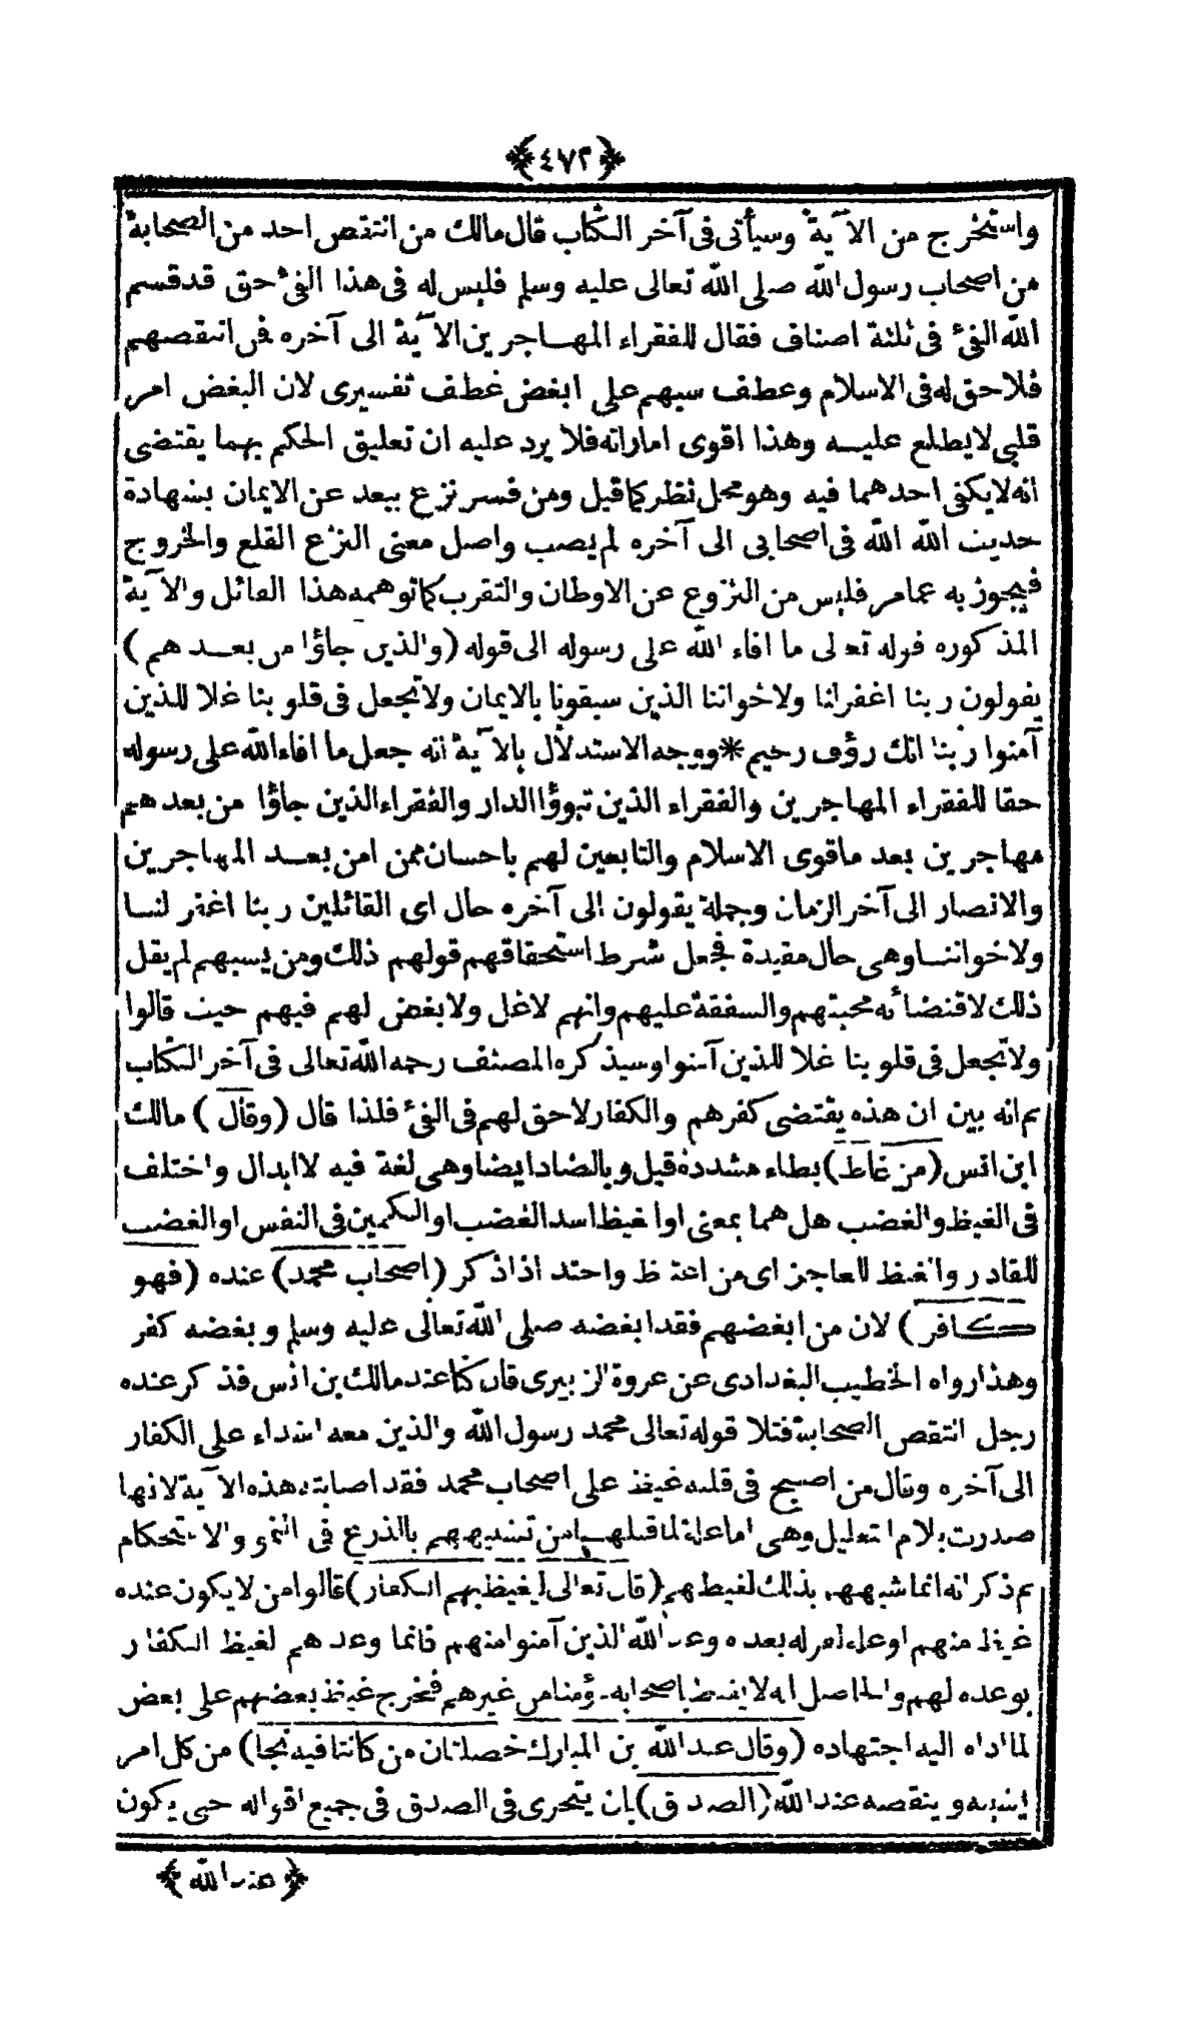 ﴿٤٧٣﴾
واستخرج من الآية وسيأتى فى آخر الكتاب قال مالك من انتقص احد من الصحابة
من اصحاب رسول الله صلى الله تعالى عليه وسلم فليس له فى هذا الفئ حق قد قسم
الله الفئ فى ثلثة اصناف فقال للفقراء المهاجرين الآية الى آخره فمن انتقصهم
فلا حق له فى الاسلام وعطف سبهم على ابغض عطف تفسيرى لان البغض امر
قلبى لا يطلع عليه وهذا اقوى اماراته فلا يرد عليه ان تعليق الحكم بهما يقتضى
انه لا يكفى احدهما فيه وهو محل نظر كما قيل ومن فسر نزع ببعد عن الايمان بشهادة
حديث الله الله فى اصحابى الى آخره لم يصب واصل معنى النزع القلع والخروج
فيجوز به عمامر فليس من النزوع عن الاوطان والتقرب كما توهمه هذا القائل والآية
المذكوره قوله تعالى ما افاء الله على رسوله الى قوله (والذين جاؤا من بعدهم)
يقولون ربنا اغفرلنا ولاخواننا الذين سبقونا بالايمان ولا تجعل فى قلوبنا غلا للذين
آمنوا ربنا انك رؤف رحيم * ووجه الاستدلال بالآية انه جعل ما افاء الله على رسوله
حقا للفقراء المهاجرين والفقراء الذين تبوؤا الدار والفقراء الذين جاؤا من بعدهم
مهاجرين بعد ماقوى الاسلام والتابعين لهم باحسان ممن امن بعد المهاجرين
والانصار الى آخر الزمان وجملة يقولون الى آخره حال اى القائلين ربنا اغفر لنا
ولاخواننا وهى حال مقيدة فجعل شرط استحقاقهم قولهم ذلك ومن يسبهم لم يقل
ذلك لاقتضائه محبتهم والشفقة عليهم وانهم لا غل ولا بغض لهم فيهم حيث قالوا
ولا تجعل فى قلوبنا غلا للذين آمنوا وسيذكره المصنف رحمه الله تعالى فى آخر الكتاب
ثم انه بين ان هذه يقتضى كفرهم والكفار لا حق لهم فى الفئ فلذا قال (وقال) مالك
ابن انس (من غاظ) بطاء مشددة قيل وبالضاد ايضا وهى لغة فيه لا ابدال واختلف
فى الغيظ والغضب هل هما بمعنى او الغيظ اشد الغضب او الكمين فى النفس او الغضب
للقادر والغيظ للعاجز اى من اغتاظ واحتد اذا ذكر (اصحاب محمد) عنده (فهو
كافر) لان من ابغضهم فقد ابغضه صلى الله تعالى عليه وسلم وبغضه كفر
وهذا رواه الخطيب البغدادى عن عروة الزبيرى قال كنا عند مالك بن انس فذكر عنده
رجل انتقص الصحابة فتلا قوله تعالى محمد رسول الله والذين معه اشداء على الكفار
الى آخره وقال من اصبح فى قلبه غيظ على اصحاب محمد فقد اصابته هذه الآية لانها
صدرت بلام التعليل وهى اما علة لما قبلها من تشبيههم بالذرع فى النمو والاستحكام
ثم ذكر انه انما شبههم بذلك لغيظهم (قال تعالى ليغيظ بهم الكفار) قالوا من لا يكون عنده
غيظ منهم او علة لامر له بعده وعد الله الذين آمنوا منهم فانما وعدهم لغيظ الكفار
بوعده لهم والحاصل انه لا يغيظ باصحابه مؤمنا من غيرهم فخرج غيظ بعضهم على بعض
لما اداه اليه اجتهاده (وقال عبد الله بن المبارك خصلتان من كانتا فيه نجا) من كل امر
يشينه وينقصه عند الله (الصدق) بان يتحرى فى الصدق فى جميع اقواله حتى يكون
﴿عند الله﴾